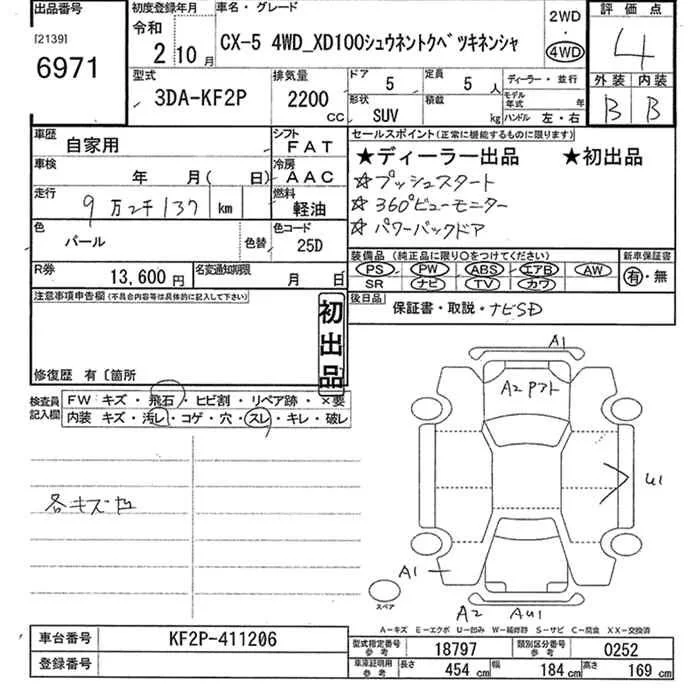 出品番号 初度登録年月 車名・グレード 2WD 評価点
[2139] 令和
6971 2年10月 CX-5 4WD_XD100シュウネントクベツキネンシャ 4WD 4
型式 排気量 ドア 定員 ディーラー・並行 外装 内装
3DA-KF2P 2200 CC 5 5人 モデル年式 年 B B
形状 積載
SUV kg ハンドル 左・右
車歴 自家用 シフト FAT セールスポイント(正常に機能するものに限ります)
車検 年 月( 日) 冷房 AAC ★ディーラー出品 ★初出品
走行 9万2千137 km 燃料 軽油 ☆プッシュスタート
☆360°ビューモニター
色 パール 色替 色コード 25D ☆パワーバックドア
R券 13,600円 名変通知期限 月 日 装備品(純正品に限り○をつけてください) 新車保証書
PS PW ABS エアB AW 有・無
SR ナビ TV カワ
注意事項申告欄(不具合内容等は具体的に記入して下さい) 初出品 後日品 保証書・取説・ナビSD
修復歴 有〔箇所
検査員記入欄 FW キズ・飛石・ヒビ割・リペア跡・×要
内装 キズ・汚レ・コゲ・穴・スレ・キレ・破レ
A1
A2 Pアト
各キズ凹
U1
A1
スペア
A2 AU1
A-キズ E-エクボ U-凹み W-補修跡 S-サビ C-腐食 XX-交換済
車台番号 KF2P-411206 型式指定番号 参考 18797 類別区分番号 参考 0252
登録番号 車庫証明用 参考 長さ 454 cm 幅 184 cm 高さ 169 cm